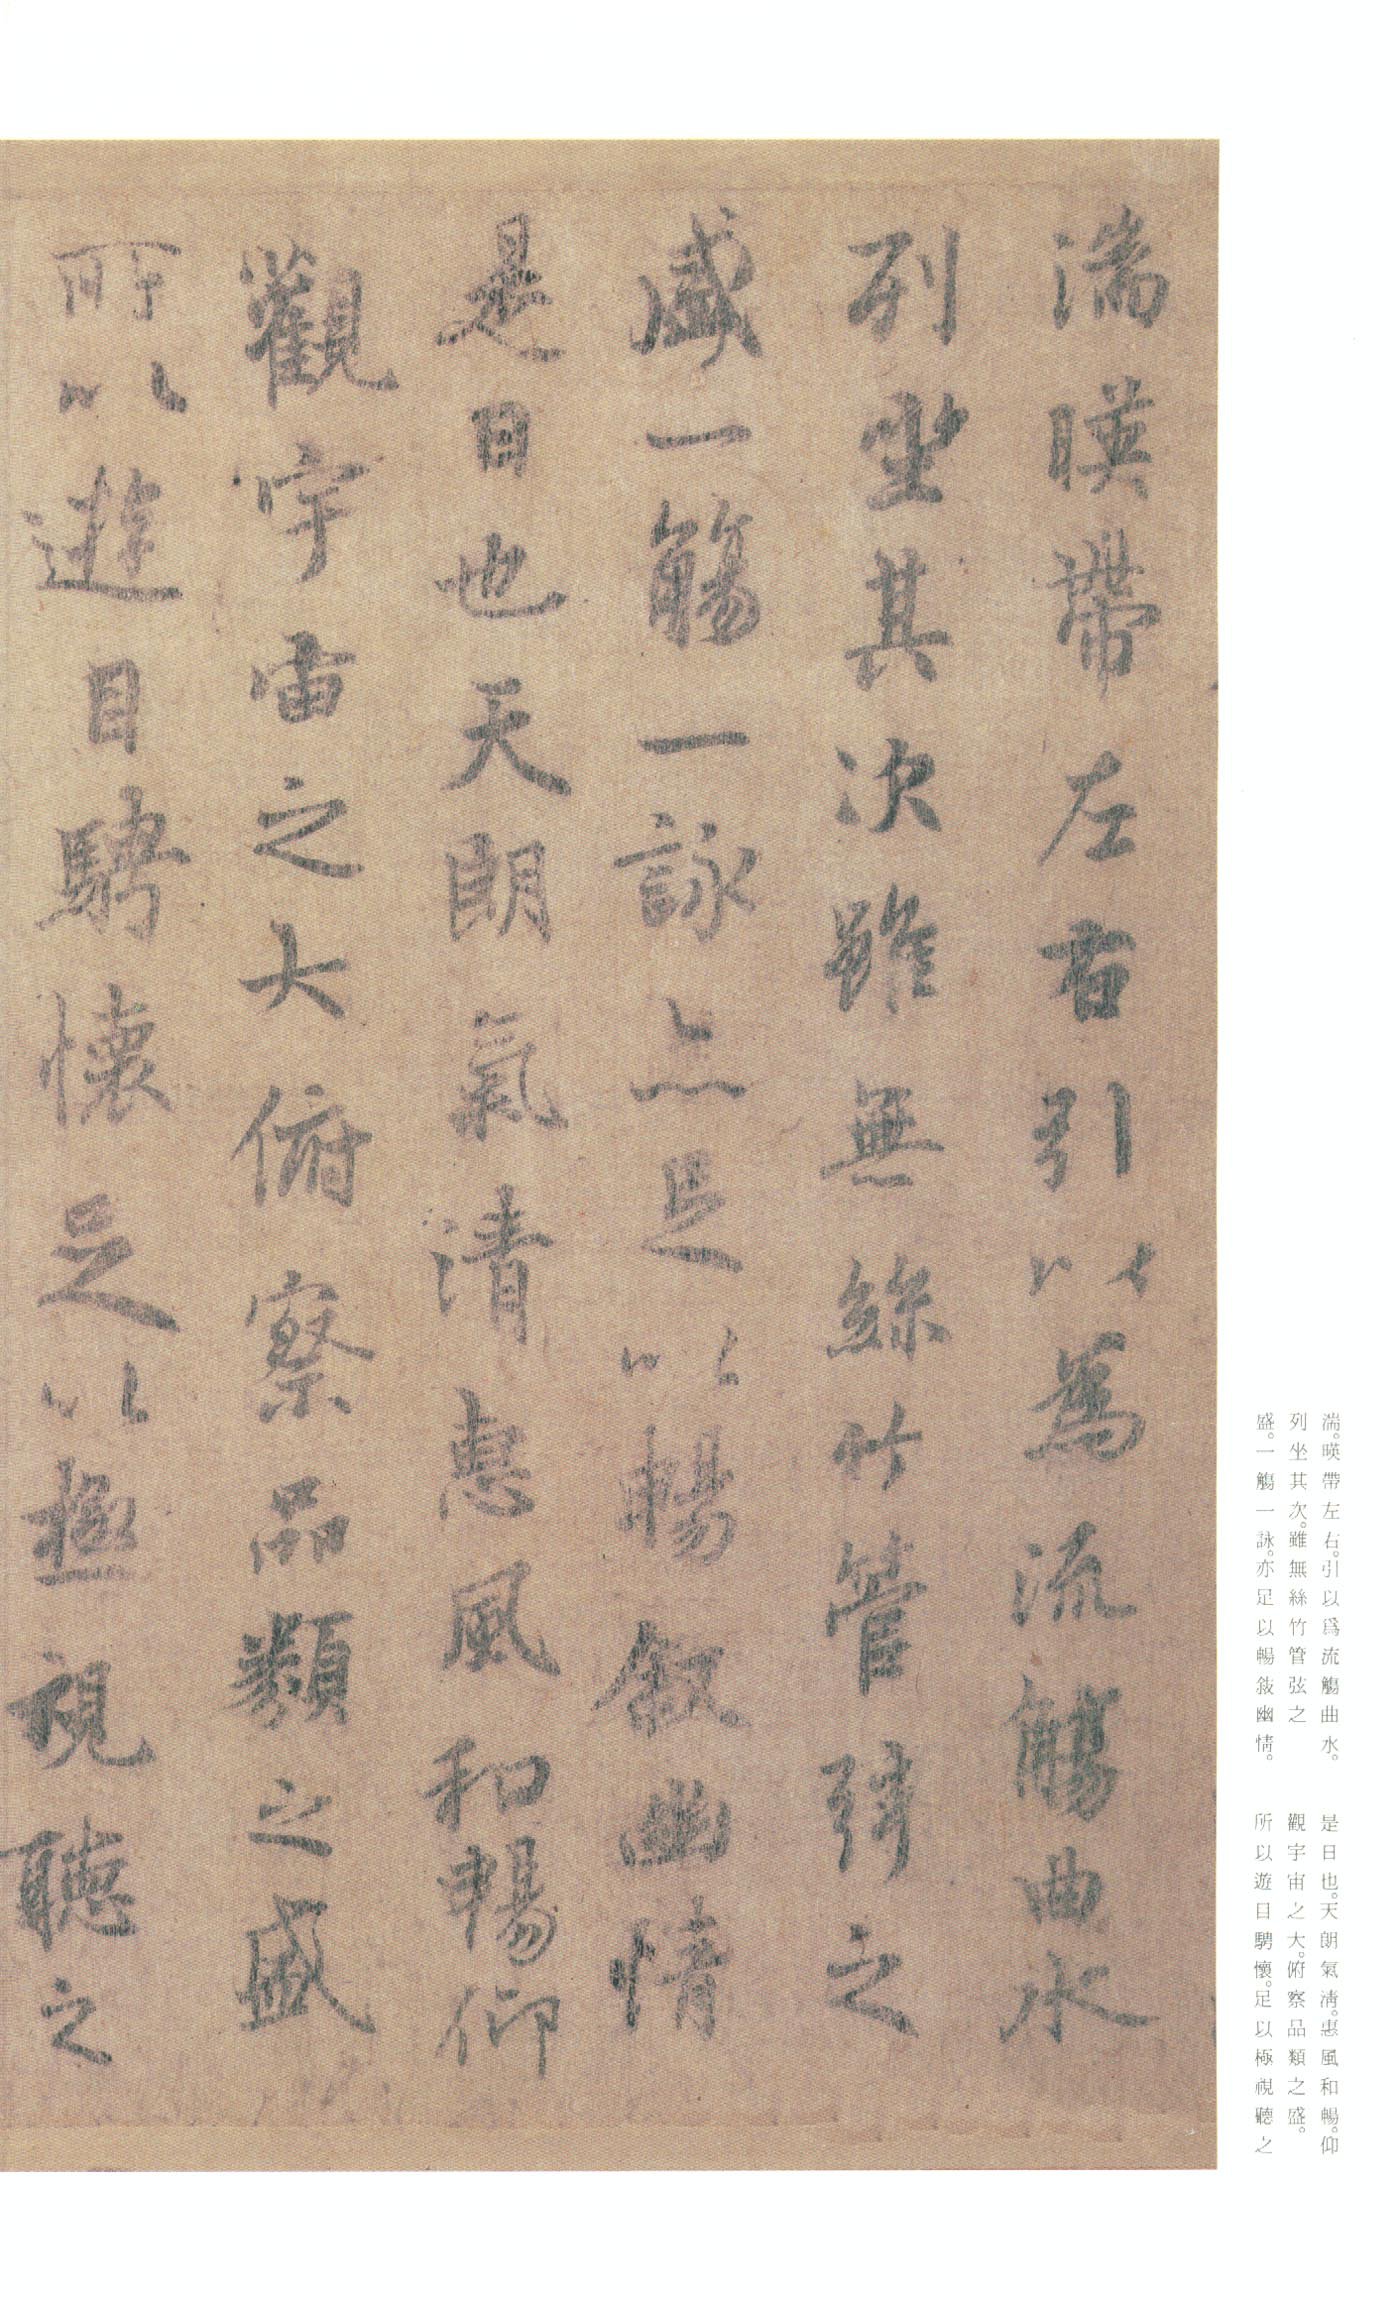 湍暎帶左右引以為流觴曲水
列坐其次雖無絲竹管弦之
盛一觴一詠亦足以暢敘幽情
是日也天朗氣清惠風和暢仰
觀宇宙之大俯察品類之盛
所以遊目騁懷足以極視聽之
湍。暎帶左右。引以爲流觴曲水。
列坐其次。雖無絲竹管弦之
盛。一觴一詠。亦足以暢敍幽情。
是日也。天朗氣淸。惠風和暢。仰
觀宇宙之大。俯察品類之盛。
所以遊目騁懷。足以極視聽之